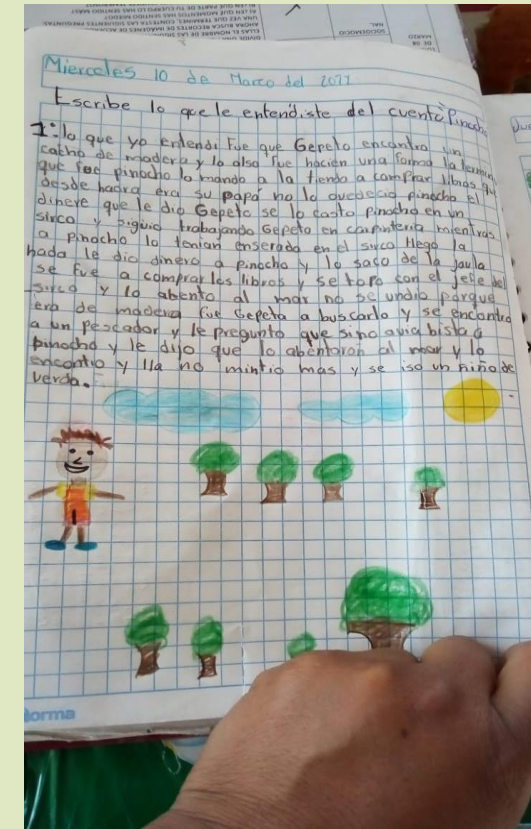 Miercoles 10 de Marzo del 2021
Escribe lo que le entendiste del cuento Pinocho
1: lo que yo entendi fue que Gepeto encantro un
cacho de madera y lo also fue hacien una forma la termino
que fue pinocho lo mando a la tienda a comprar libros que
desde haora era su papá no lo ovedecio pinocho el
dinere que le dio Gepeto se lo casto pinocho en un
sirco y siguio trabajando Gepeto en carpinteria mientras
a pinocho lo tenian enserado en el sirco llego la
hada le dio dinero a pinocho y lo saco de la jaula
se fue a comprar les libros y se topo con el jefe del
sirco y lo abento al mar no se undio porque
era de madera fue Gepeta a buscarlo y se encontro
a un pescador y le pregunto que sino avia bisto a
pinocho y le dijo que lo abentaron al mar y lo
encontio y lla no mintio mas y se iso un niño de
verda.
Norma